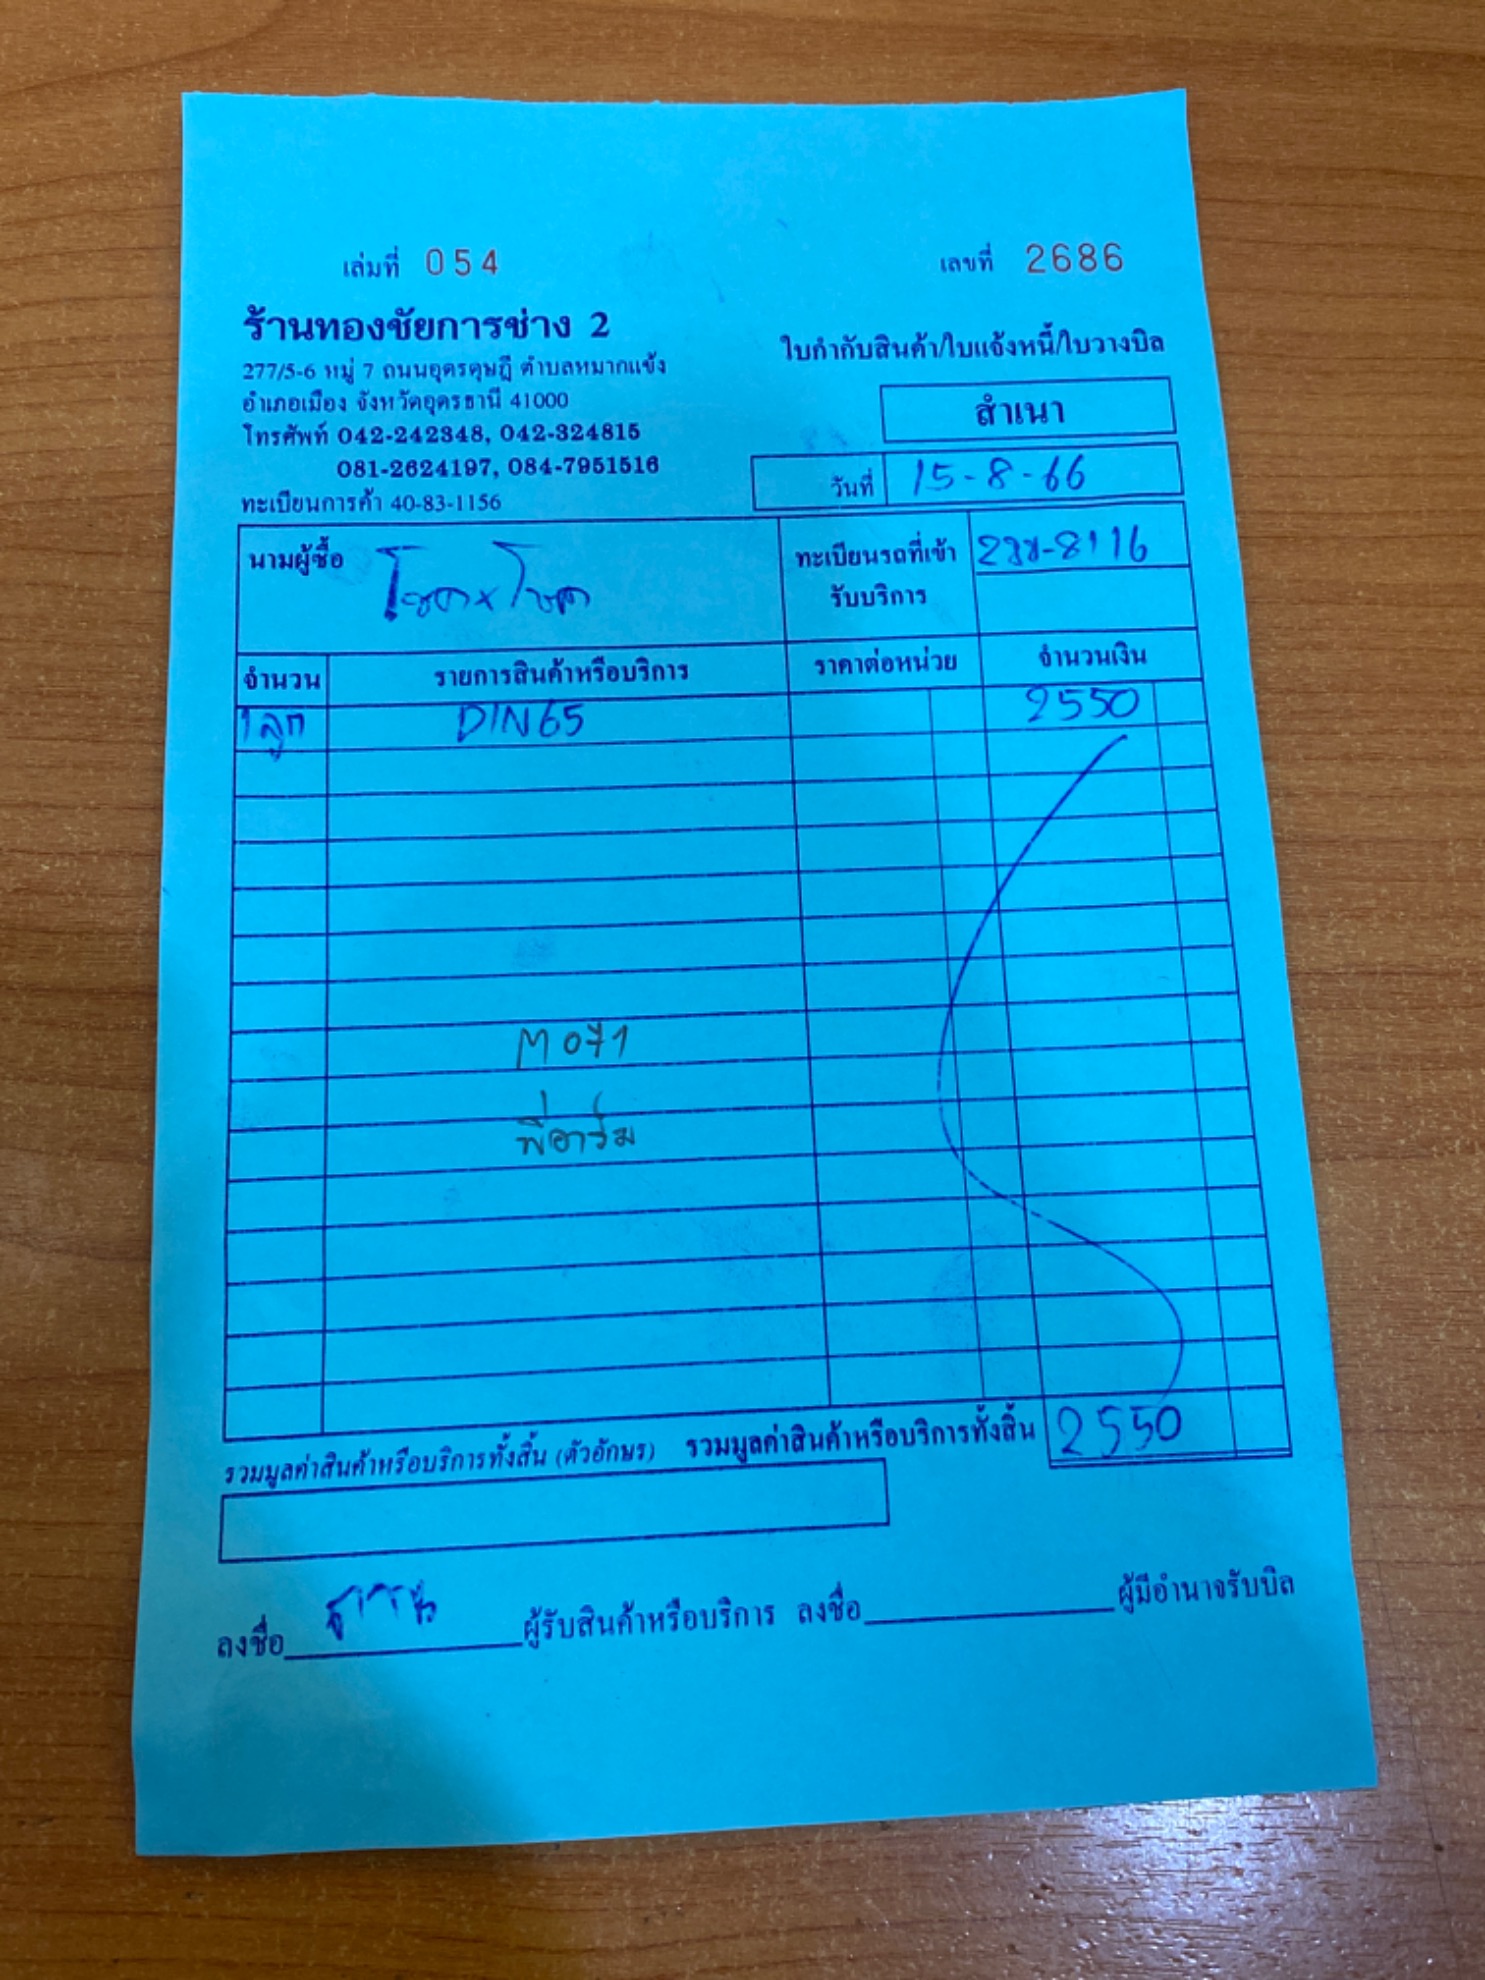 เล่มที่ 054 เลขที่ 2686
ร้านทองชัยการช่าง 2
277/5-6 หมู่ 7 ถนนอุดรดุษฎี ตำบลหมากแข้ง
อำเภอเมือง จังหวัดอุดรธานี 41000
โทรศัพท์ 042-242348, 042-324815
081-2624197, 084-7951516
ทะเบียนการค้า 40-83-1156
ใบกำกับสินค้า/ใบแจ้งหนี้/ใบวางบิล
สำเนา
วันที่ 15-8-66
นามผู้ซื้อ
ทะเบียนรถที่เข้า
รับบริการ
จำนวน รายการสินค้าหรือบริการ ราคาต่อหน่วย จำนวนเงิน
1 ลูก DIN65 2550
M071
พี่อาร์ม
รวมมูลค่าสินค้าหรือบริการทั้งสิ้น (ตัวอักษร) รวมมูลค่าสินค้าหรือบริการทั้งสิ้น 2550
ลงชื่อ ผู้รับสินค้าหรือบริการ ลงชื่อ ผู้มีอำนาจรับบิล